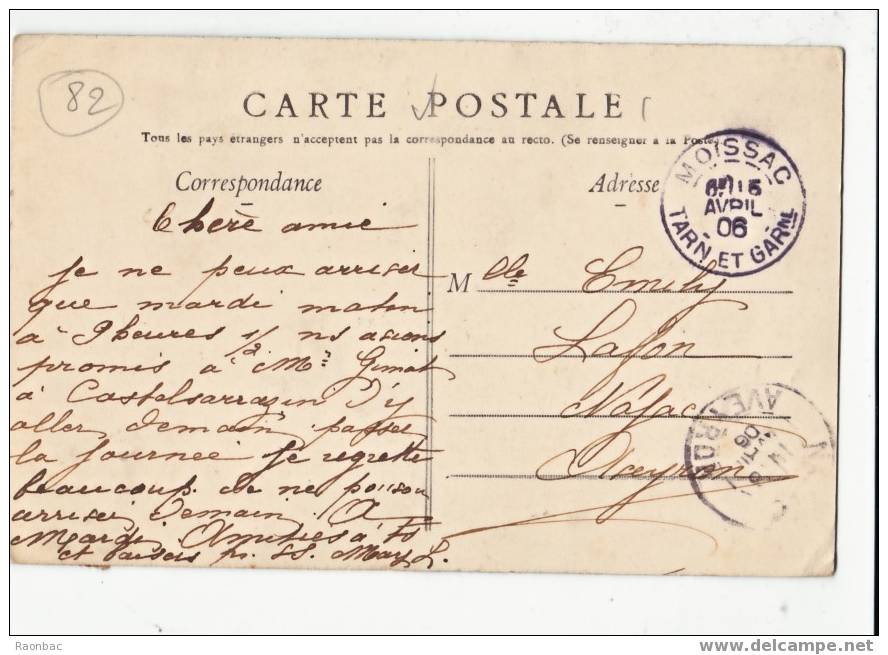 82
CARTE POSTALE
Tous les pays étrangers n'acceptent pas la correspondance au recto. (Se renseigner à la Poste)
Correspondance
Adresse
MOISSAC
15
AVRIL
06
TARN ET GARNE
Chère amie
je ne peux arriver
que mardi matin
à 9 heures 1/2 ns avions
promis à Mr Gimat
à Castelsarrazin d'y
aller demain passer
la journée je regrette
beaucoup de ne pouvoir
arriver demain. A
Mardi. Amitiés à ts
et baisers
M lle Emily
Lafon
Najac
Aveyron
AVEYRON
06
Raonbac
www.delcampe.net